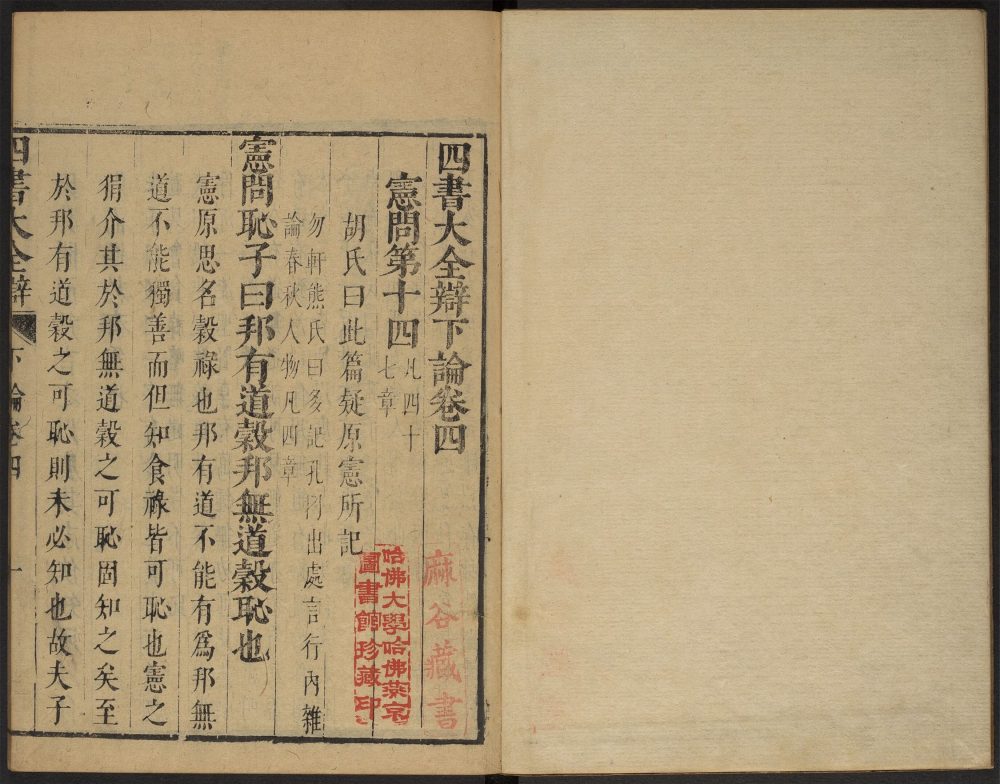 四書大全辯下論卷四
憲問第十四
凡四十
七章
胡氏曰此篇疑原憲所記
勿軒熊氏曰多記孔門出處言行內雜
論春秋人物凡四章
憲問恥子曰邦有道穀邦無道穀恥也
憲原思名穀祿也邦有道不能有爲邦無
道不能獨善而但知食祿皆可恥也憲之
狷介其於邦無道穀之可恥固知之矣至
於邦有道穀之可恥則未必知也故夫子
四書大全辯
下論卷四
一
麻谷藏書
哈佛大學哈佛燕京
圖書館珍藏印